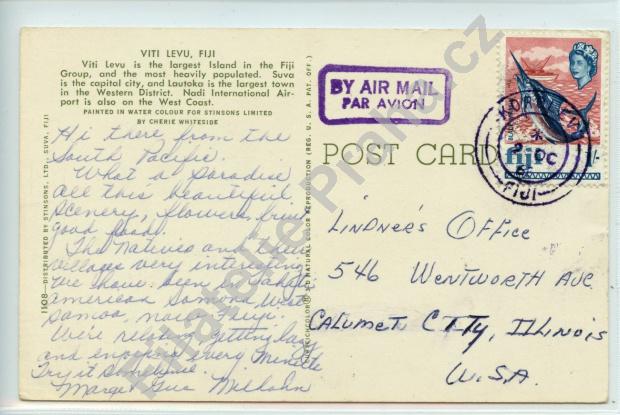 VITI LEVU, FIJI
Viti Levu is the largest Island in the Fiji
Group, and the most heavily populated. Suva
is the capital city, and Lautoka is the largest town
in the Western District. Nadi International Air-
port is also on the West Coast.
PAINTED IN WATER COLOUR FOR STINSONS LIMITED
BY CHERIE WHITESIDE
Hi there from the
South Pacific.
What a paradise
all this beautiful
scenery, flowers, fruit
good food.
The Natives and their
villages very interesting
We have been to
american Samoa, West
Samoa, now Fiji.
We're relaxing getting lazy
and enjoying every minute
Try it sometime.
Marge Gus
1108—DISTRIBUTED BY STINSONS, LTD., SUVA, FIJI
NATURAL COLOR REPRODUCTION (REG. U.S.A. PAT. OFF.)
BY AIR MAIL
PAR AVION
POST CARD
fiji
1/-
2 OC
FIJI
LINDNER'S OFFICE
546 WENTWORTH AVE
CALUMET CITY, ILLINOIS
U.S.A.
Filatelie-Praha.cz